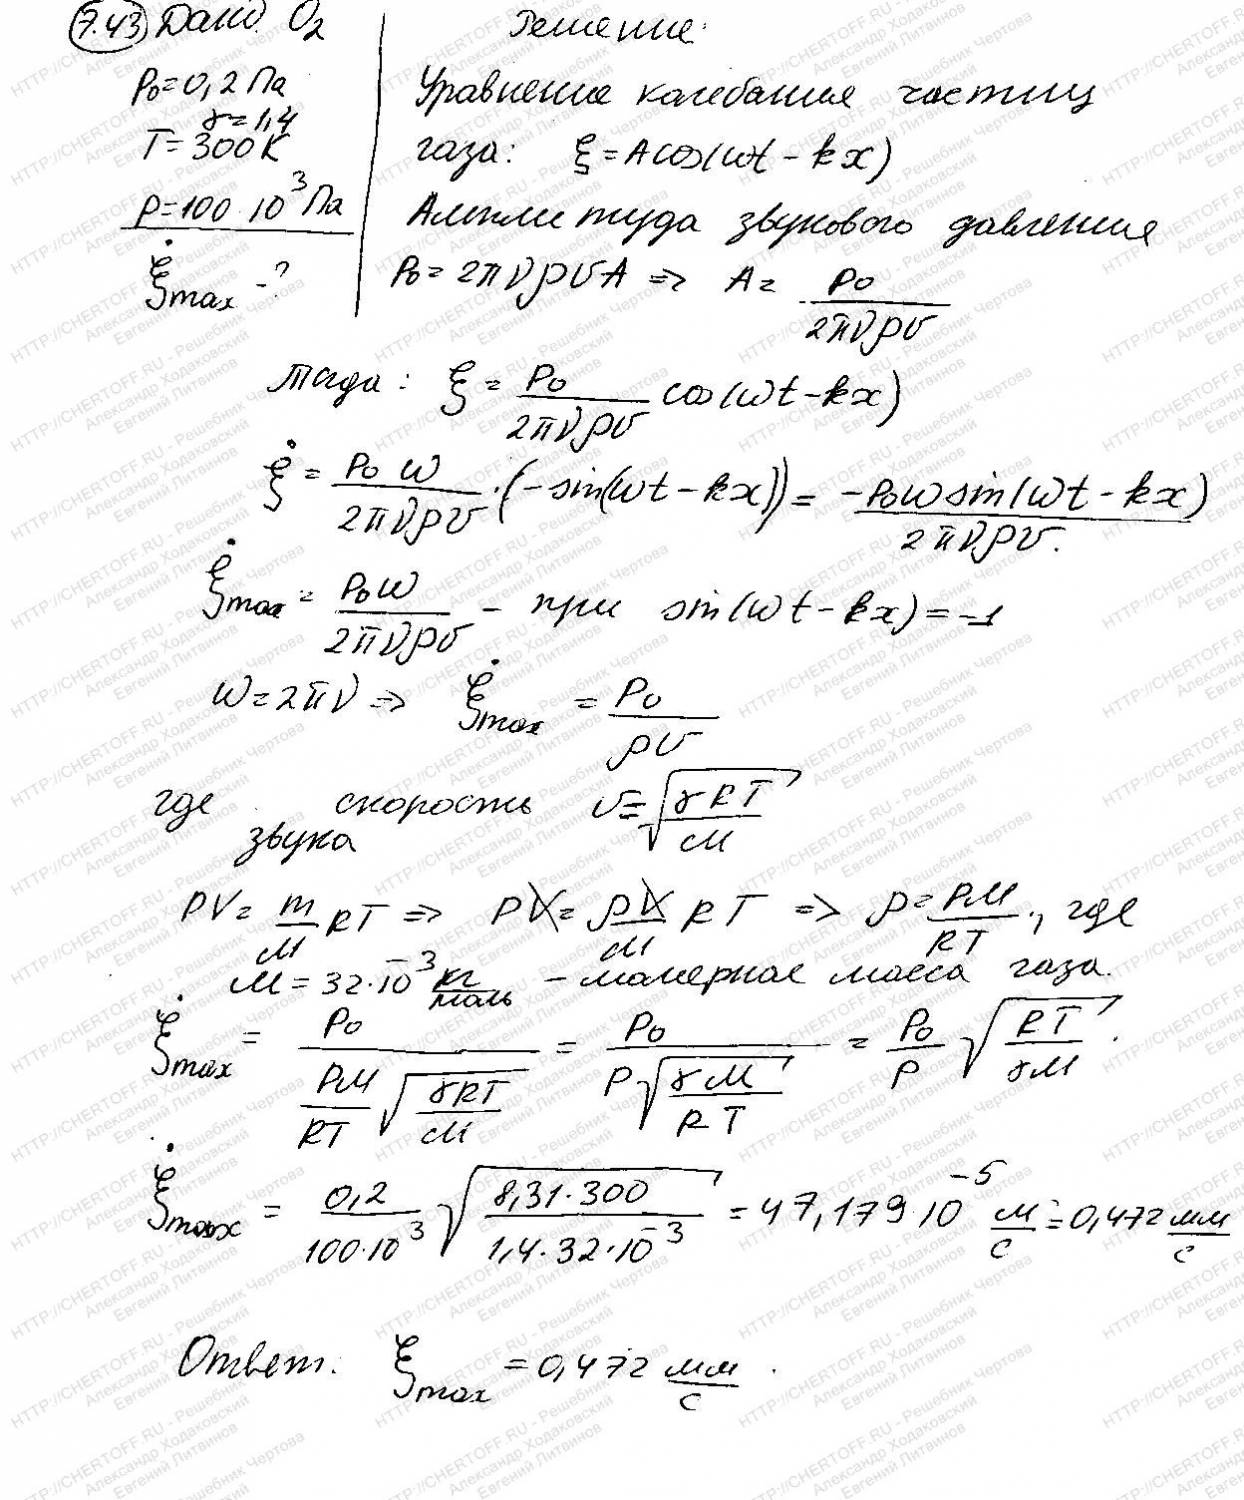 7.43 Дано: O₂ Решение:
p₀=0,2 Па
γ=1,4
T=300K
p=100·10³ Па
ξ̇max -?
Уравнение колебания частиц
газа: ξ=Acos(ωt-kx)
Амплитуда звукового давления
p₀=2πνρυA => A= p₀/(2πνρυ)
Тогда: ξ= p₀/(2πνρυ) cos(ωt-kx)
ξ̇= p₀ω/(2πνρυ)·(-sin(ωt-kx))= -p₀ωsin(ωt-kx)/(2πνρυ).
ξ̇max= p₀ω/(2πνρυ) - при sin(ωt-kx)=-1
ω=2πν => ξ̇max= p₀/(ρυ)
где скорость звука υ=√(γRT/M)
PV= m/M RT => PV= ρV/M RT => ρ= PM/RT, где
M=32·10⁻³ кг/моль -молярная масса газа.
ξ̇max= p₀/(PM/RT √(γRT/M)) = p₀/(P√(γM/RT)) = p₀/P √(RT/γM).
ξ̇max= 0,2/(100·10³) √(8,31·300/(1,4·32·10⁻³)) =47,179·10⁻⁵ м/с=0,472 мм/с
Ответ: ξ̇max=0,472 мм/с.
HTTP://CHERTOFF.RU - Решебник Чертова
Александр Ходаковский
Евгений Литвинов